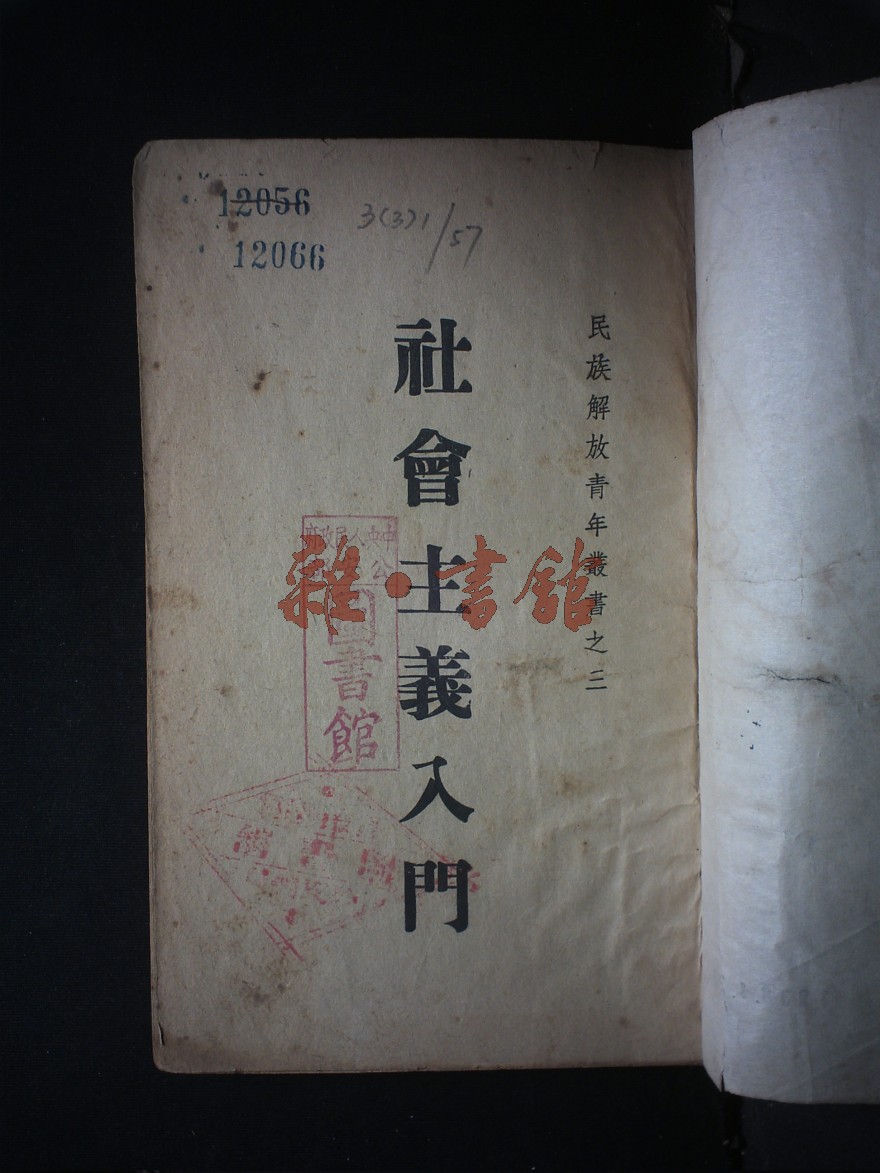 12056
12066
3(3)1/57
民族解放青年叢書之三
社會主義入門
雜·書館
圖書館